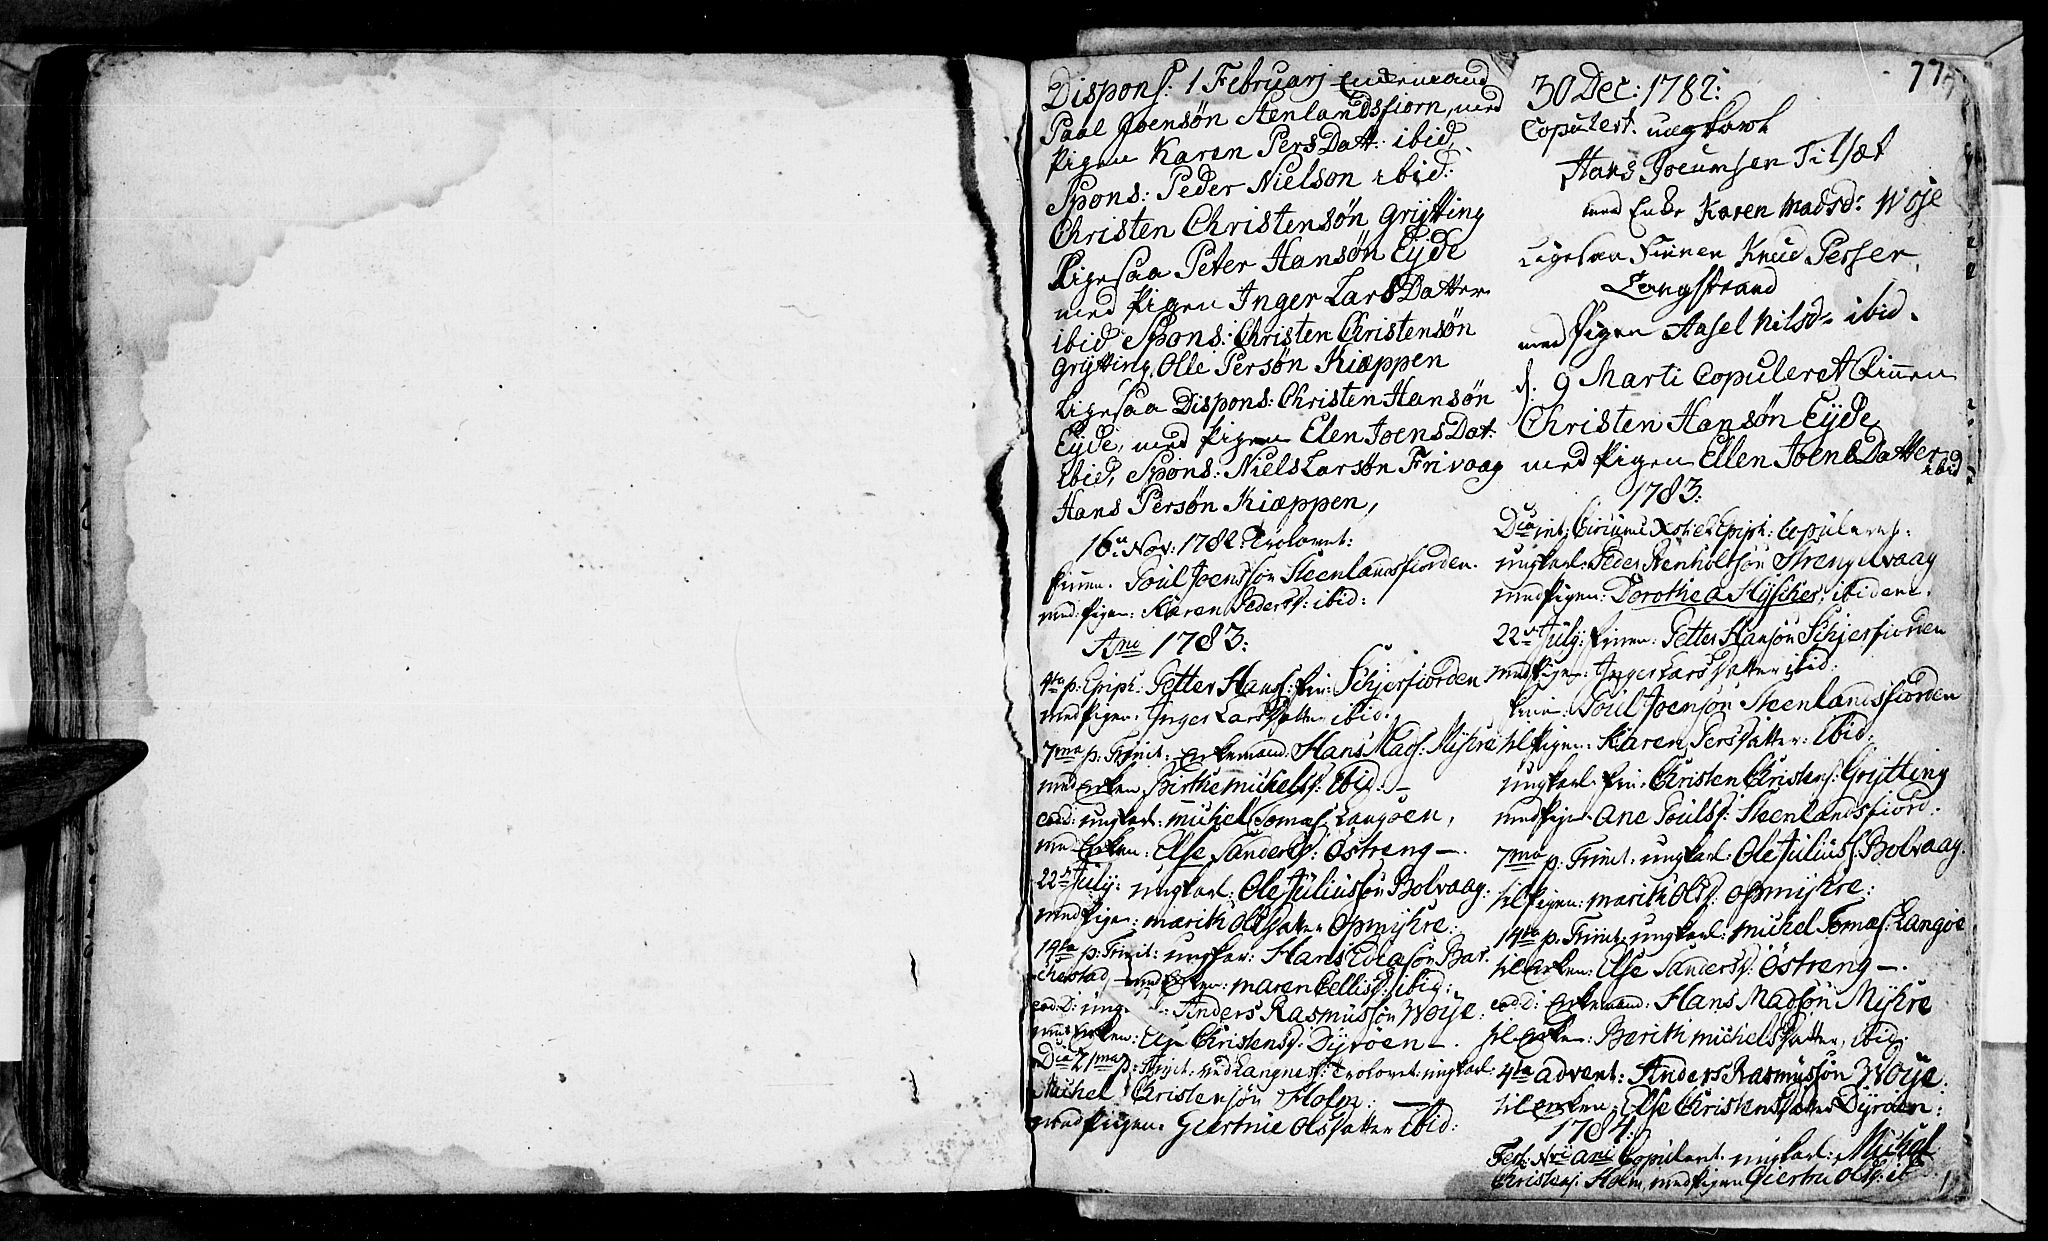 77
Dispons: 1 Februarj Enkemand
Paal Joensøn Stenlandsfiorn, med
Pigen Karen PersDatt: ibid,
Spons: Peder Nielson ibid:
Christen Christensøn Grÿtting
Ligesaa Peter Hansøn Eÿde
med Pigen Inger LarsDatter
ibid Spons: Christen Christensøn
Grÿtting, Olle Persøn Kiæppen
Ligesaa Dispons: Christen Hansøn
Eÿde, med Pigen Elen JoensDat:
ibid, Spons: Niels Larsøn Frivaag
Hans Persøn Kiæppen,
16 Nov: 1782: Trolovet:
finn. Poul Joensøn Steenlandsfiorden.
med Pigen: Karen Peders: ibid:
Ano 1783:
4ta p: Epiph: Petter Hans: fin: Schjerfiorden
med Pigen: Inger LarsDatter ibid:
7ma p: Trinit: Enkemand: Hans Mads: Mÿhre
med Enken Birthe Michelsd: ibid: –
eod: ungkarl: Michel Tomas: Langøen,
med Enken: Else Sandersd: Østreng –.
22 Julÿ: ungkarl: Ole Juliussøn Bolvaag:
med Pige: Marith OlsDatter Opmÿhre:
14ta p: Trinit: ungkar: Hans
med Enken: Maren Ellisd: ibid:
eod: D: Anders Rasmussøn Woÿe:
med Enken: Christensd. Dÿrøen –.
Dca 21ma p: Trinit: ved Langnes: Trolovet: ungkarl
Michel Christensøn Holm: –
med Pigen: Giertrue OlsDatter ibid:
30 Dec: 1782:
Copulert: ungkarl
Hans Jocumsen Tilset
med Enke Karen Madsd: Woje
Ligesaa Finnen Knud Persen,
Langstrand
med Pigen Aasel Nilsd: ibid.
d: 9 Marti Copuleret Finnen
Christen Hansøn Eÿde,
med Pigen Ellen JoensDatter
ibid
1783:
Epiph: Copuleret:
ungkarl: Peder Strengelvaag
med Pigen: Dorothea ibidem.
22 Julÿ: finn: Petter Hansøn Schjerfiorden
med Pigen: Inger LarsDatter ibid:
finn: Poul Joensøn Steenlandsfiorden
til Pigen: Karen PersDatter: ibid:
ungkarl: fin: Christen Christens: Grÿtting
med Pigen Ane Poulsd: Steenlandsfiord:
7ma p: Trinit: ungkarl: Ole Julius: Bolvaag.
til Pigen: Marith Olsd: Opmÿhre:
14ta p: Trinit: ungkarl: Michel Tomas: Langøe
til Enken: Else Sandersd: Østreng –.
eod D: Enkemand: Hans Madsøn Mÿhre
til Enke: Berith MichelsDatter, ibid:
4ta Advent: Anders Rasmussøn Woÿe:
til Enken: Else ChristensDatter Dÿrøen:
1784:
Fest: Nvi ani Copulert ungkarl: Michel
Christens: Holm, med Pigen Giertru Olsd: